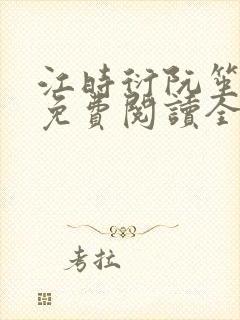 江時衍阮笙
免費閱讀全
考拉